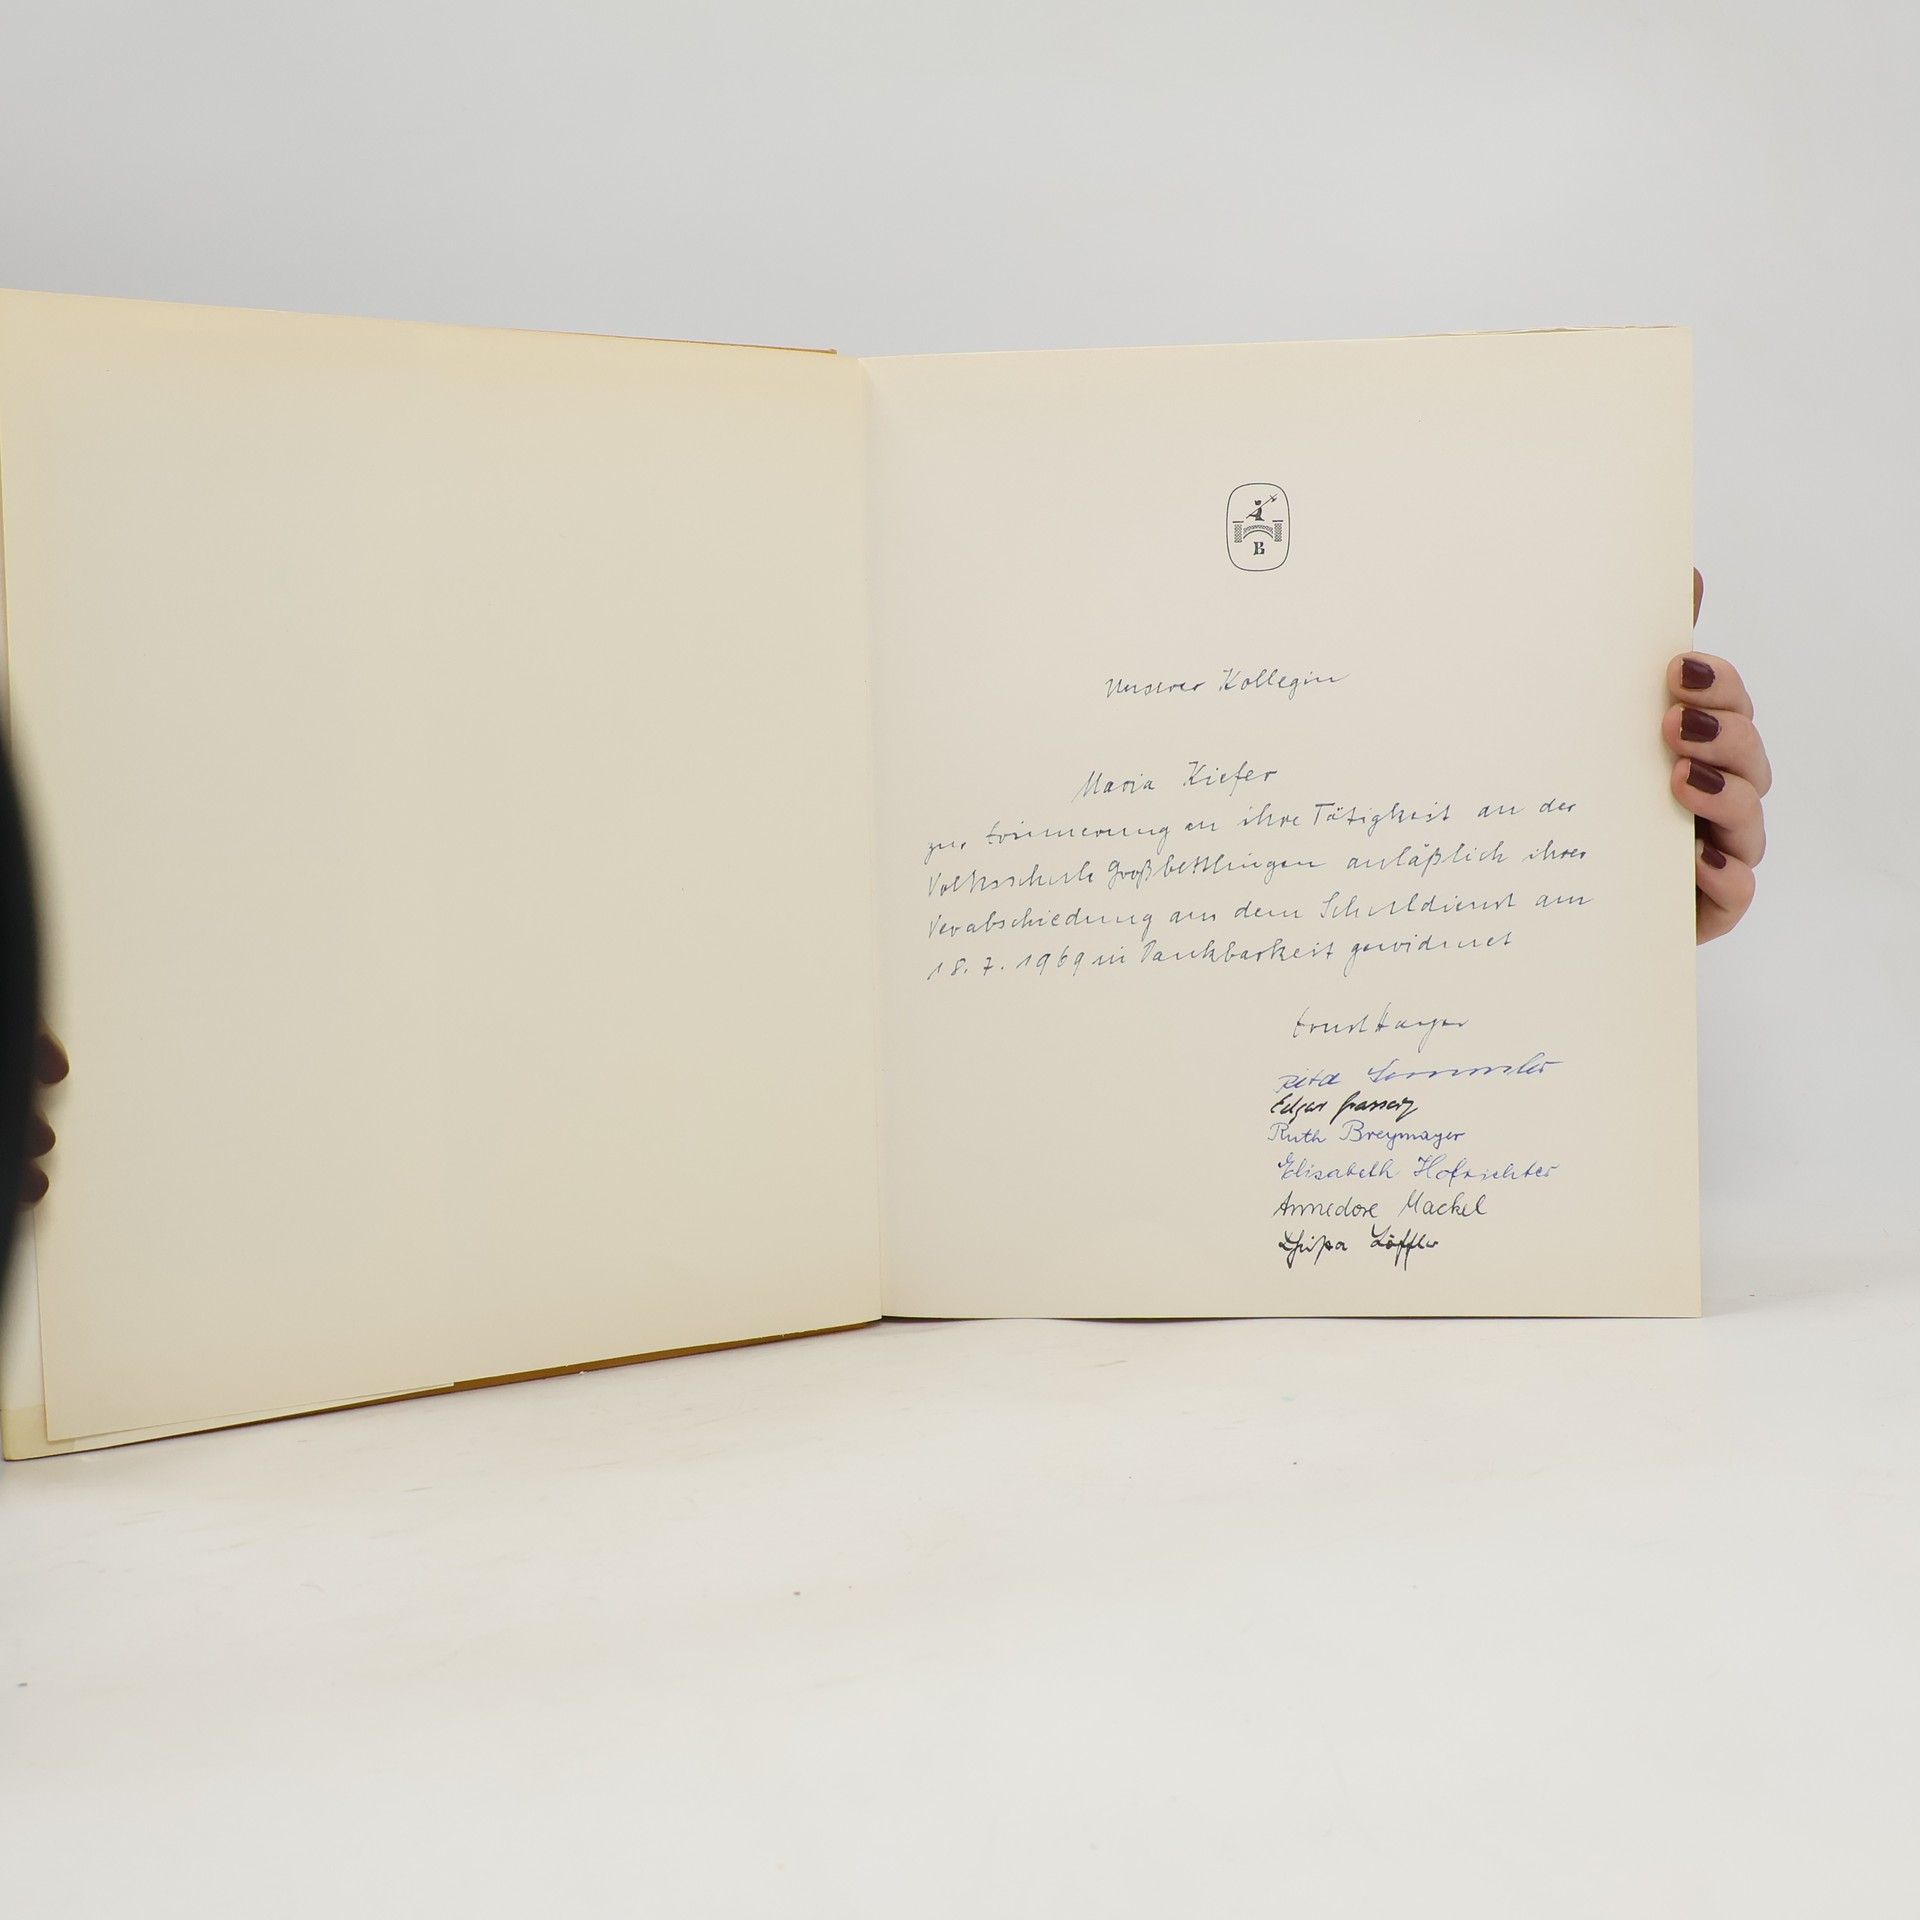 B
Unserer Kollegin
Maria Kiefer
zur Erinnerung an ihre Tätigkeit an der
Volksschule Großbettlingen anläßlich ihrer
Verabschiedung aus dem Schuldienst am
18. 7. 1969 in Dankbarkeit gewidmet
Ernst
Rita
Edgar
Ruth Breymayer
Elisabeth Hofrichter
Annedore Mackel
Löffler